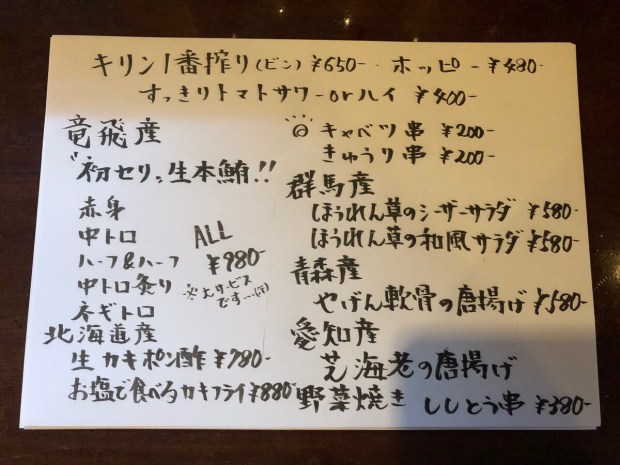 キリン一番搾り(ビン) ¥650- ホッピー ¥480-
すっきりトマトサワーorハイ ¥400-
竜飛産
〝初セリ〟生本鮪!!
赤身
中トロ
ハーフ&ハーフ
中トロ炙り
ネギトロ
ALL
¥980-
※大サービス
です…(汗)
北海道産
生カキポン酢 ¥780-
お塩で食べるカキフライ ¥880-
キャベツ串 ¥200-
きゅうり串 ¥200-
群馬産
ほうれん草のシーザーサラダ ¥580-
ほうれん草の和風サラダ ¥580-
青森産
やげん軟骨の唐揚げ ¥580-
愛知産
芝海老の唐揚げ
野菜焼き ししとう串 ¥380-